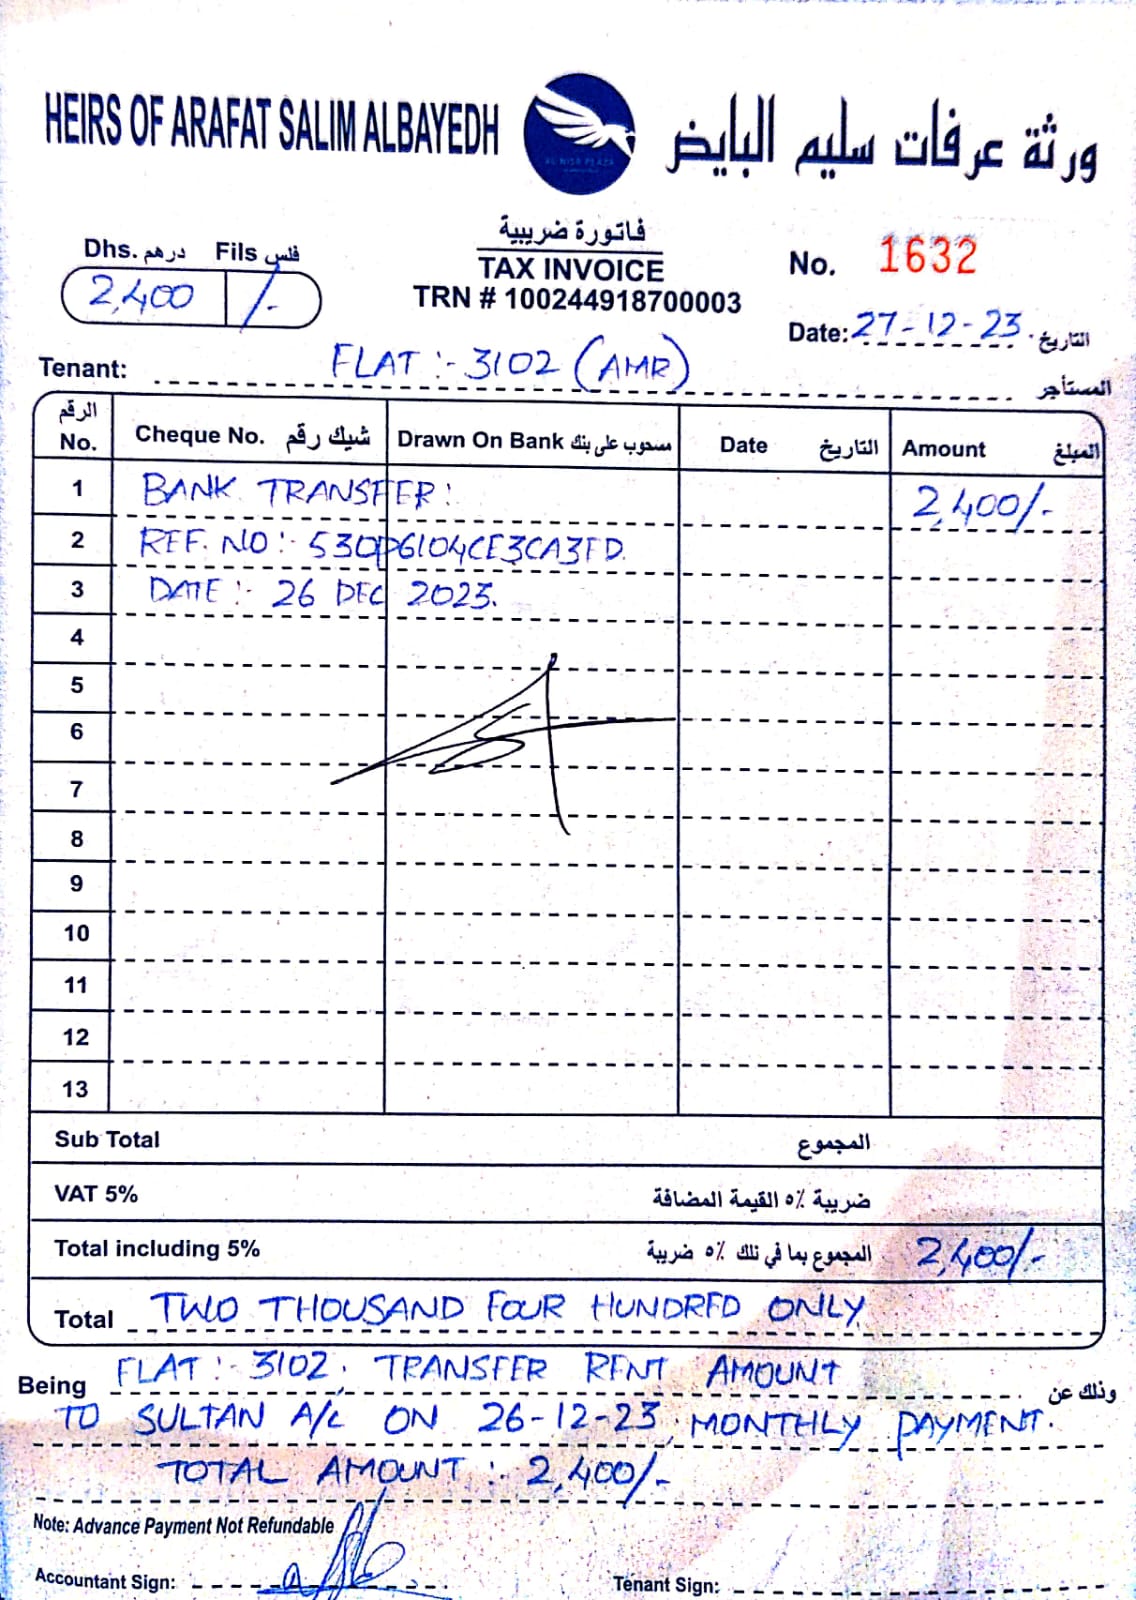 HEIRS OF ARAFAT SALIM ALBAYEDH
ورثة عرفات سليم البايض
AL NISR PLAZA
Dhs. درهم Fils فلس
2,400 /-
فاتورة ضريبية
TAX INVOICE
TRN # 100244918700003
No. 1632
Date: 27-12-23 التاريخ
Tenant: FLAT :- 3102 (AMR) المستأجر
الرقم No. Cheque No. شيك رقم Drawn On Bank مسحوب على بنك Date التاريخ Amount المبلغ
1 BANK TRANSFER: 2,400/-
2 REF. NO :- 530P6104CE3CA3FD.
3 DATE :- 26 DEC 2023.
4
5
6
7
8
9
10
11
12
13
Sub Total المجموع
VAT 5% ضريبة ٥٪ القيمة المضافة
Total including 5% المجموع بما في تلك ٥٪ ضريبة 2,400/-
Total TWO THOUSAND FOUR HUNDRED ONLY
Being FLAT :- 3102, TRANSFER RENT AMOUNT وذلك عن
TO SULTAN A/C ON 26-12-23, MONTHLY PAYMENT.
TOTAL AMOUNT :- 2,400/-
Note: Advance Payment Not Refundable
Accountant Sign: Tenant Sign: